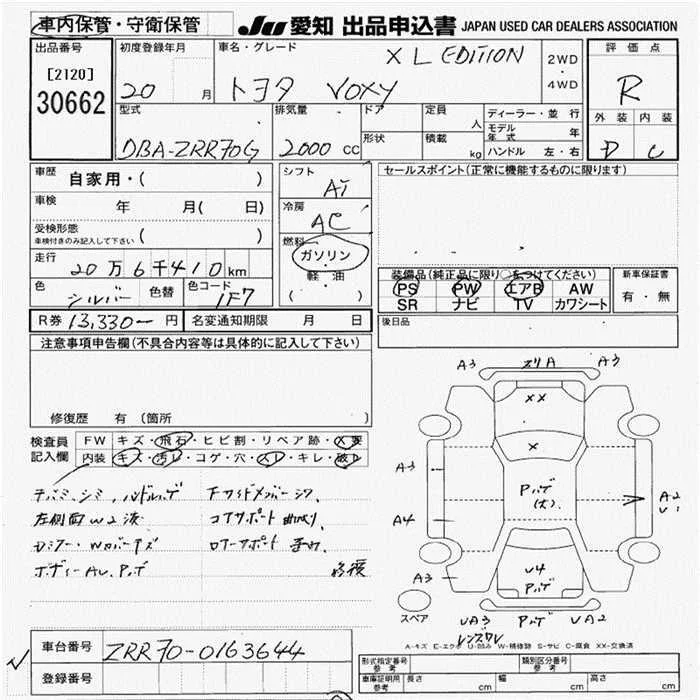 車内保管・守衛保管
JU 愛知 出品申込書 JAPAN USED CAR DEALERS ASSOCIATION
出品番号
[2120]
30662
初度登録年月
20 月
車名・グレード
トヨタ VOXY
X L EDITION
2WD
・
4WD
評価点
R
外装 内装
D C
型式
DBA-ZRR70G
排気量
2000 CC
ドア
形状
定員
人
積載
kg
ディーラー・並行
モデル年式 年
ハンドル 左・右
車歴 自家用・( )
車検 年 月( 日)
受検形態
車検付きのみ記入して下さい ( )
走行 20万6千410km
色 シルバー 色替
色コード 1F7
シフト
AT
冷房
AC
燃料
ガソリン
・
軽・油
( )
セールスポイント(正常に機能するものに限ります)
装備品(純正品に限り○をつけてください)
PS PW エアB AW
SR ナビ TV カワシート
新車保証書
有・無
後日品
R券 13,330- 円 名変通知期限 月 日
注意事項申告欄(不具合内容等は具体的に記入して下さい)
修復歴 有(箇所
検査員
記入欄
FW キズ・飛石・ヒビ割・リペア跡・
内装 キズ・汚レ・コゲ・穴・スレ・キレ・破レ
左側面W2波
コアサポート曲り
修復
A3 A3
XX
X
A3
A4
A3
A2
U1
U4
UA3 UA2
スペア
A-キズ E-エクボ U-凹み W-補修跡 S-サビ C-腐食 XX-交換済
車台番号 ZRR70-0163644
登録番号
形式指定番号
参考
類別区分番号
参考
車庫証明用
参考
長さ cm 幅 cm 高さ cm